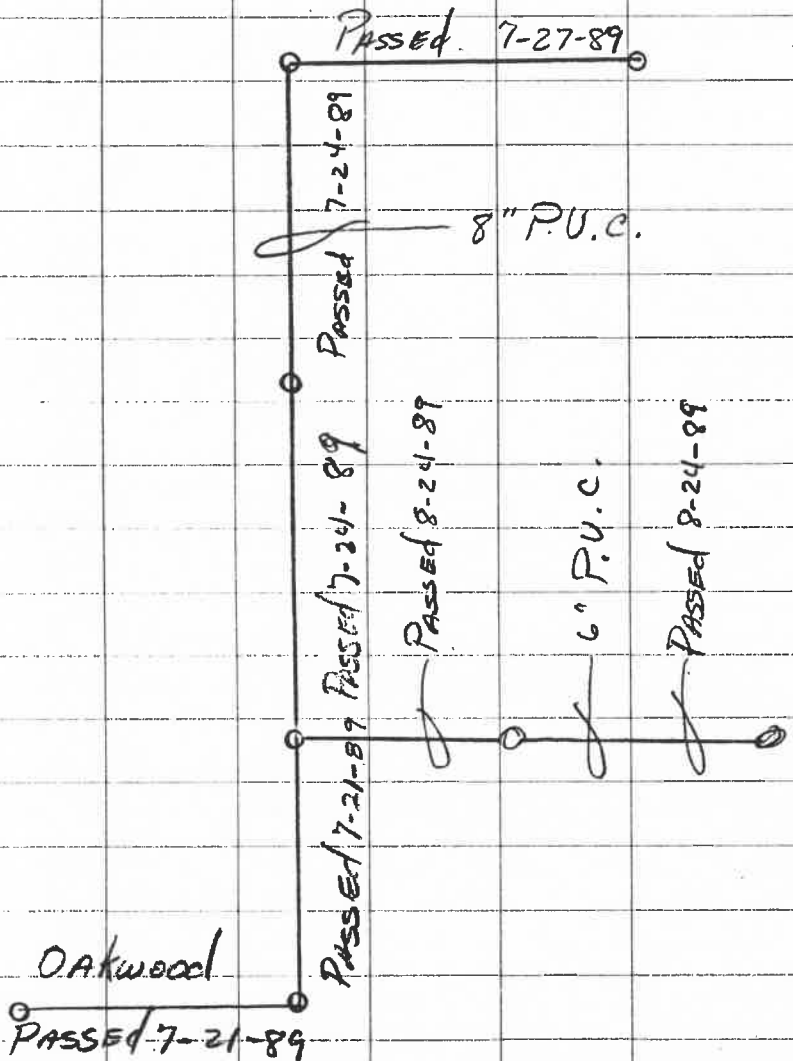 PASSED. 7-27-89
Passed 7-24-89
8" P.V.C.
PASSED 7-24-89
PASSED 8-24-89
6" P.V.C.
PASSED 8-24-89
PASSED 7-21-89
OAKWOOD
PASSED 7-21-89